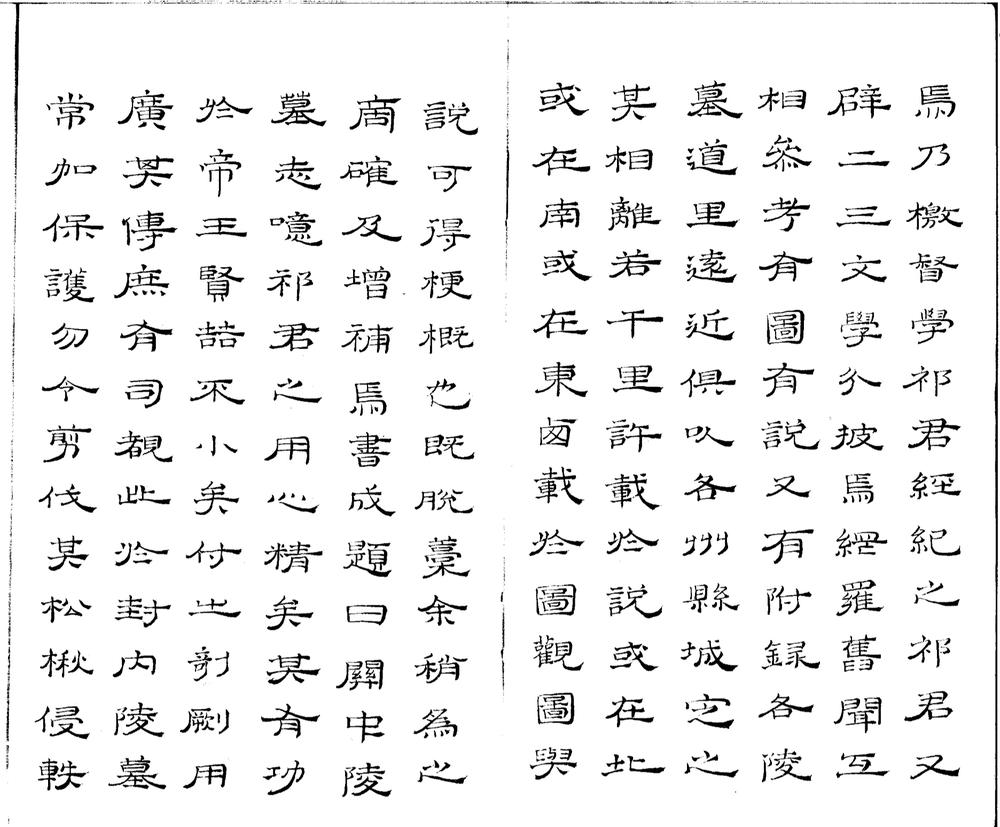 焉乃檄督學祁君經紀之祁君又
辟二三文學分披焉網羅舊聞互
相參考有圖有說又有附録各陵
墓道里遠近俱以各州縣城定之
其相離若干里許載於說或在北
或在南或在東西載於圖觀圖與
說可得梗概也既脫藁余稍為之
商確及增補焉書成題曰關中陵
墓志噫祁君之用心精矣其有功
於帝王賢喆不小矣付之剞劂用
廣其傳庶有司覩此於封內陵墓
常加保護勿令剪伐其松楸侵軼